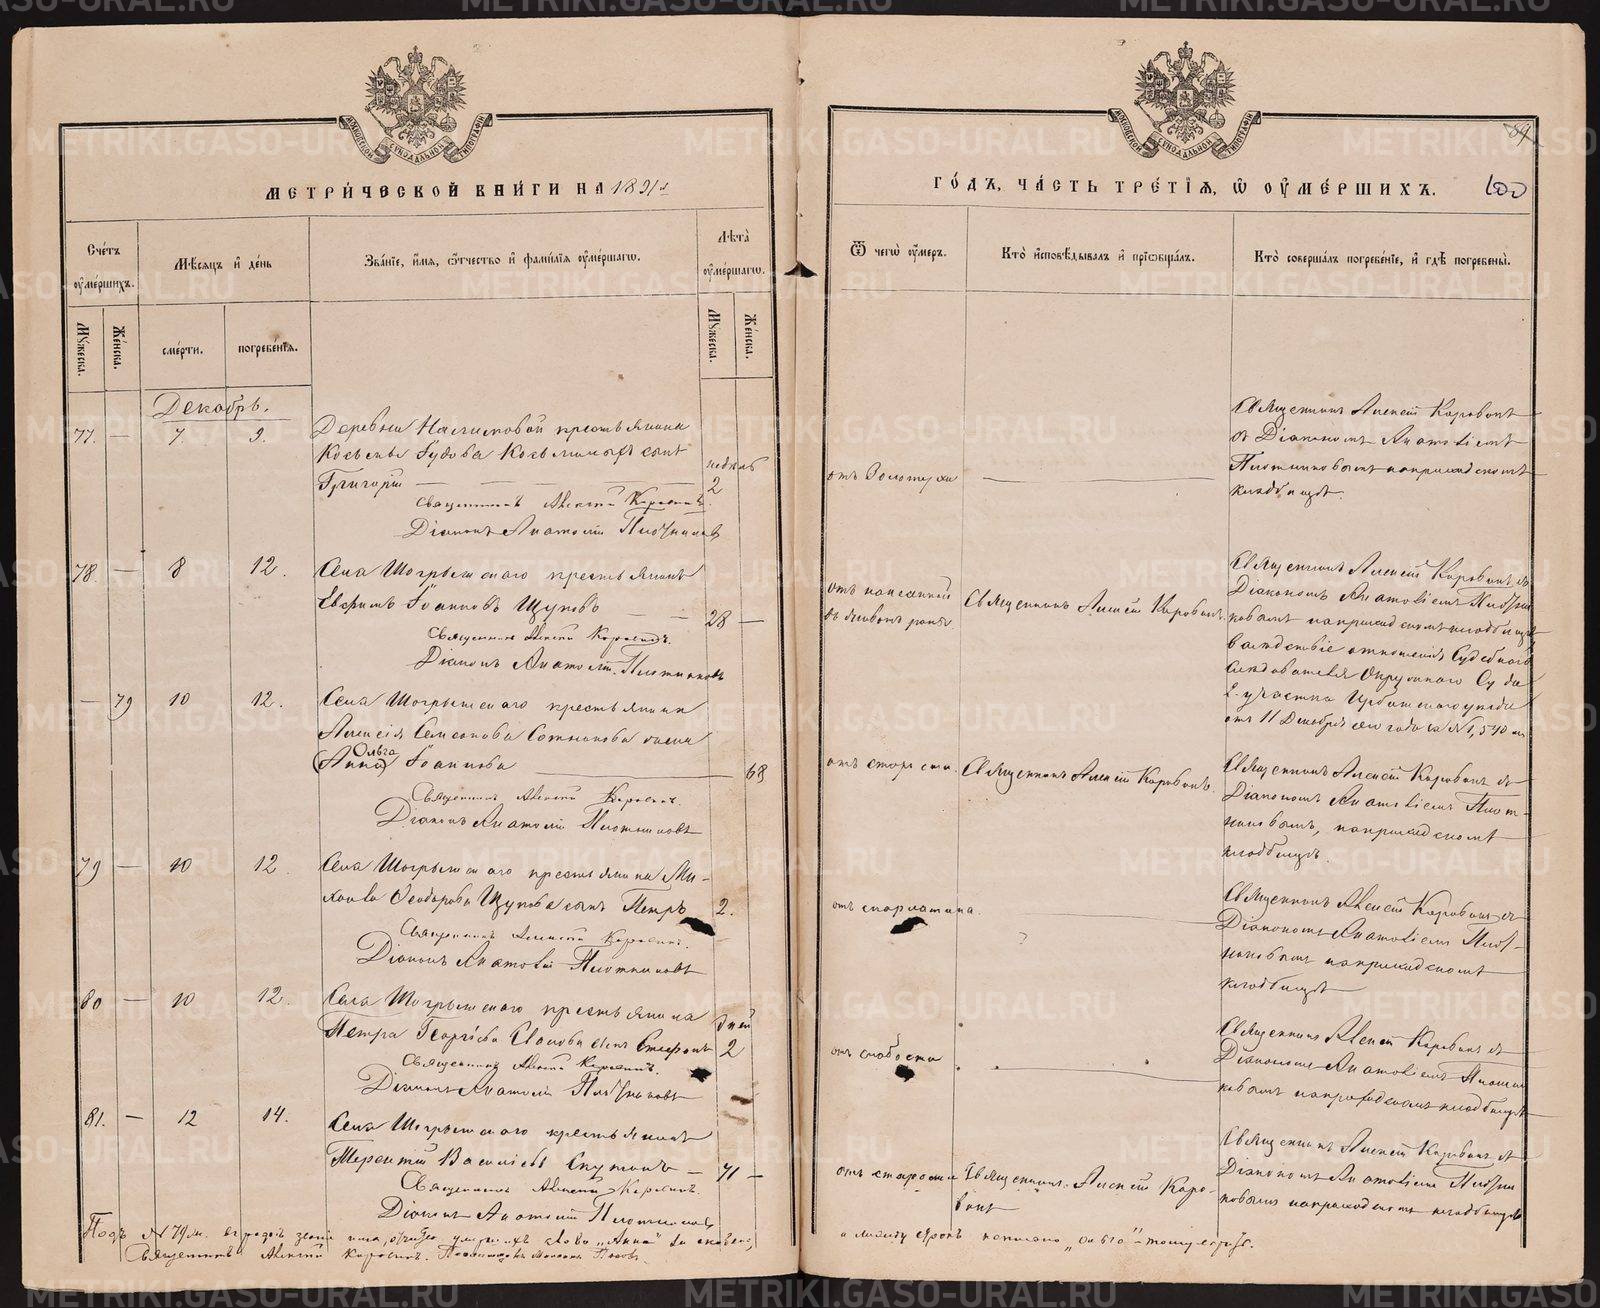 МЕТРИ́ЧЕСКОЙ КНИ́ГИ НА 1891 г
ГО́ДЪ, ЧА́СТЬ ТРЕ́ТІѦ, Ѡ ОУ҆МЕ́РШИХЪ.
84
100
Сче́тъ оу҆ме́ршихъ.
Мѣ́сяцъ и҆ де́нь
Зва́ніе, и҆́мя, ѻ҆́тчество и҆ фами́лія оу҆ме́ршагѡ.
Лѣ́та оу҆ме́ршагѡ.
Ѿ чегѡ̀ оу҆́меръ.
Кто̀ и҆сповѣ́дывалъ и҆ прїѡбща́лъ.
Кто̀ соверша́лъ погребе́ніе, и҆ гдѣ̀ погребены̀.
Му́жеска.
Же́нска.
сме́рти.
погребе́нія.
Му́жеска.
Же́нска.
Декабрь.
77. — 7. 9.
Деревни крестьянина
Козьмы сынъ недѣль
Григорій — 2
Священникъ Алексій Коровинъ
Діаконъ Анатолій Плотниковъ
отъ Золотухи —
Священникъ Алексій Коровинъ
съ Діакономъ Анатоліемъ
Плотниковымъ на приходскомъ
кладбищѣ.
78. — 8 12.
Села Шогрышскаго крестьянинъ
Евфимъ Іоанновъ Щуковъ — 28 —
Священникъ Алексій Коровинъ.
Діаконъ Анатолій Плотниковъ
отъ нанесенной
въ раны
Священникъ Алексій Коровинъ
Священникъ Алексій Коровинъ съ
Діакономъ Анатоліемъ Плотни-
ковымъ на приходскомъ кладбищѣ
вслѣдствіе отношенія Судебнаго
Слѣдователя Окружнаго Суда
2 участка Ирбитскаго уѣзда
отъ 11 Декабря сего года за № 1,570
— 79 10 12.
Села Шогрышскаго крестьянина
Алексія Семенова жена
Ольга
(Анна) Іоаннова — 68
Священникъ Алексій Коровинъ.
Діаконъ Анатолій Плотниковъ
отъ старости.
Священникъ Алексій Коровинъ.
Священникъ Алексій Коровинъ съ
Діакономъ Анатоліемъ Плот-
никовымъ, на приходскомъ
кладбищѣ.
79 — 10 12.
Села Шогрышскаго крестьянина Ми-
хаила Ѳеодорова Щукова сынъ Петръ 2.
Священникъ Алексій Коровинъ.
Діаконъ Анатолій Плотниковъ
отъ скарлатина.
Священникъ Алексій Коровинъ съ
Діакономъ Анатоліемъ Плот-
никовымъ на приходскомъ
кладбищѣ —
80 — 10 12.
Села Шогрышскаго крестьянина дней
Петра Георгіева сынъ Стефанъ 2
Священникъ Алексій Коровинъ.
Діаконъ Анатолій Плотниковъ
отъ слабости
Священникъ Алексій Коровинъ съ
Діакономъ Анатоліемъ Плотни-
ковымъ на приходскомъ кладбищѣ
81. — 12 14.
Села Шогрышскаго крестьянинъ
Терентій Василіевъ — 71 —
Священникъ Алексій Коровинъ.
Діаконъ Анатолій Плотниковъ
отъ старости
Священникъ Алексій Коро-
винъ
Священникъ Алексій Коровинъ съ
Діакономъ Анатоліемъ Плотни-
ковымъ на приходскомъ кладбищѣ
Подъ № 79 м. въ графѣ званіе имя, отчество умершихъ слово „Анна" въ скобкахъ,
а между строкъ написано „Ольга"
Священникъ Алексій Коровинъ. Псаломщикъ Попов.
METRIKI.GASO-URAL.RU